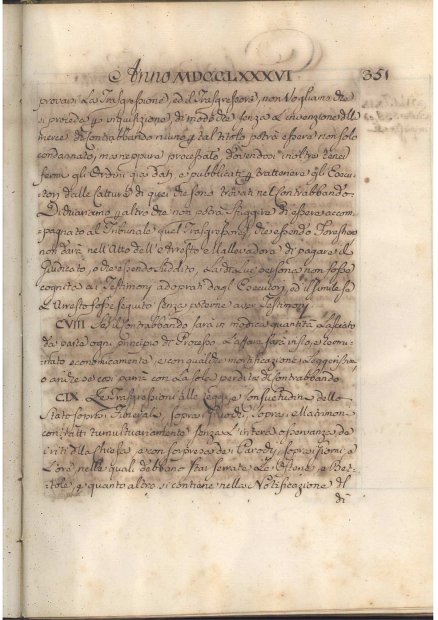 Anno MDCCLXXXVI 351
provarsi la Trasgressione, ed il Trasgressore, non Vogliamo che
si proceda p inquisizione, di modo che senza l'invenzione della
merce di Contrabbando niuno p tal titolo potrà essere non solo
condannato, ma neppure processato, dovendosi inoltre tener
fermi gli Ordini già dati, e pubblicati p trattenere gli Execu-
tori dalle Catture di quei che sono trovati nel Contrabbando
Dichiariamo p altro che non potrà sfuggire di essere accom-
pagnato al Tribunale quel Trasgressore, che essendo Forestiero
non darà nell'Atto dell'Arresto Mallevadore di pagare il
Giudicato, o che essendo Suddito, la di lui persona non fosse
cognita ai Testimonj adoprati dagl Executori, ed il simile se
l'Arresto fosse seguito senza poterne aver Testimonj
CVIII Se il Contrabbando sarà in modica quantità lasciato
da parte ogni principio di Processo l'affare sarà visto, e termi-
nato economicamente, e con qualche mortificazione leggerissima
o anche se così parrà con la sola perdita di Contrabbando
CIX Le Trasgressioni alle Leggi, e Consuetudini dello
Stato sopra i Funerali, sopra i Giuochi, sopra i Matrimon
contratti tumultuariamente senza l'intera osservanza de
riti di S. Chiesa, e con sorpresa dei Parochi, sopra i Giorni, e
l'Ore nelle quali debbano star serrate le Osterie, e Bet-
tole, e quanto altro si contiene nella Notificazione del
di